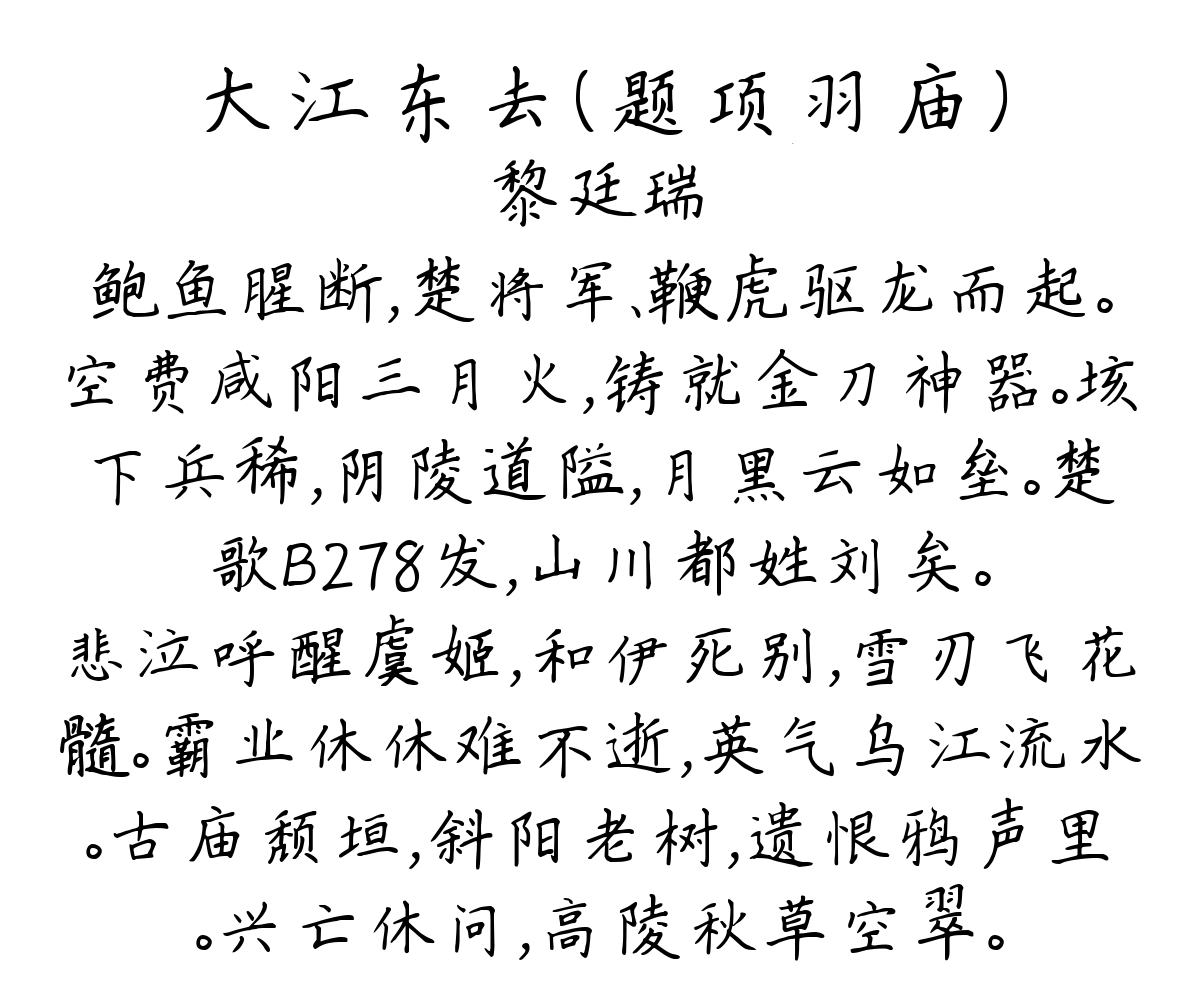 大江东去(题项羽庙)
黎廷瑞
鲍鱼腥断,楚将军、鞭虎驱龙而起。
空费咸阳三月火,铸就金刀神器。垓
下兵稀,阴陵道隘,月黑云如垒。楚
歌B278发,山川都姓刘矣。
悲泣呼醒虞姬,和伊死别,雪刃飞花
髓。霸业休休难不逝,英气乌江流水
。古庙颓垣,斜阳老树,遗恨鸦声里
。兴亡休问,高陵秋草空翠。